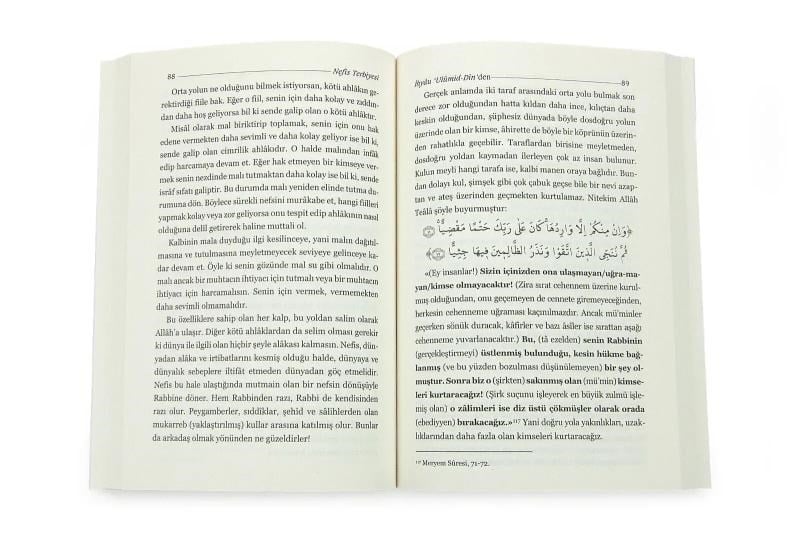 88 Nefis Terbiyesi
Orta yolun ne olduğunu bilmek istiyorsan, kötü ahlâkın ge-
rektirdiği fiile bak. Eğer o fiil, senin için daha kolay ve zıddın-
dan daha hoş geliyorsa bil ki sende galip olan o kötü ahlâktır.
Misâl olarak mal biriktirip toplamak, senin için onu hak
edene vermekten daha sevimli ve daha kolay geliyor ise bil ki,
sende galip olan cimrilik ahlâkıdır. O halde malından infâk
edip harcamaya devam et. Eğer hak etmeyen bir kimseye ver-
mek senin nezdinde malı tutmaktan daha kolay ise bil ki, sende
isrâf sıfatı galiptir. Bu durumda malı yeniden elinde tutma du-
rumuna dön. Böylece sürekli nefsini murâkabe et, hangi fiilleri
yapmak kolay veya zor geliyorsa onu tespit edip ahlâkının nasıl
olduğuna delil getirerek haline muttali ol.
Kalbinin mala duyduğu ilgi kesilinceye, yani malın dağıtıl-
masına ve tutulmasına meyletmeyecek seviyeye gelinceye ka-
dar devam et. Öyle ki senin gözünde mal su gibi olmalıdır. O
malı ancak bir muhtacın ihtiyacı için tutmalı veya bir muhtacın
ihtiyacı için harcamalısın. Senin için vermek, vermemekten
daha sevimli olmamalıdır.
Bu özelliklere sahip olan her kalp, bu yoldan salim olarak
Allâh'a ulaşır. Diğer kötü ahlâklardan da selim olması gerekir
ki dünya ile ilgili olan hiçbir şeyle alâkası kalmasın. Nefis, dün-
yadan alâka ve irtibatlarını kesmiş olduğu halde, dünyaya ve
dünyalık sebeplere iltifât etmeden dünyadan göç etmelidir.
Nefis bu hale ulaştığında mutmain olan bir nefsin dönüşüyle
Rabbine döner. Hem Rabbinden razı, Rabbi de kendisinden
razı olur. Peygamberler, sıddîklar, şehîd ve sâlihlerden olan
mukarreb (yaklaştırılmış) kullar arasına katılmış olur. Bunlar
da arkadaş olmak yönünden ne güzeldirler!
İhyâu 'Ulûmid-Dîn'den 89
Gerçek anlamda iki taraf arasındaki orta yolu bulmak son
derece zor olduğundan hatta kıldan daha ince, kılıçtan daha
keskin olduğundan, şüphesiz dünyada böyle dosdoğru yolun
üzerinde olan bir kimse, âhirette de böyle bir köprünün üzerin-
den rahatlıkla geçebilir. Taraflardan birisine meyletmeden,
dosdoğru yoldan kaymadan ilerleyen çok az insan bulunur.
Kulun meyli hangi tarafa ise, kalbi manen oraya bağlıdır. Bun-
dan dolayı kul, şimşek gibi çok çabuk geçse bile bir nevi azap-
tan ve ateş üzerinden geçmekten kurtulamaz. Nitekim Allâh
Teâlâ şöyle buyurmuştur:
﴿وَاِنْ مِنْكُمْ اِلَّا وَارِدُهَا كَانَ عَلٰى رَبِّكَ حَتْمًا مَقْضِيًّا ﴿٧١﴾
ثُمَّ نُنَجِّي الَّذِينَ اتَّقَوْا وَنَذَرُ الظَّالِمِينَ فِيهَا جِثِيًّا ﴿٧٢﴾﴾
«(Ey insanlar!) Sizin içinizden ona ulaşmayan/uğra-
mayan/kimse olmayacaktır! (Zira sırat cehennem üzerine kurul-
muş olduğundan, onu geçemeyen de cennete giremeyeceğinden,
herkesin cehenneme uğraması kaçınılmazdır. Ancak mü'minler
geçerken sönük duracak, kâfirler ve bazı âsîler ise sırattan aşağı
cehenneme yuvarlanacaktır.) Bu, (tâ ezelden) senin Rabbinin
(gerçekleştirmeyi) üstlenmiş bulunduğu, kesin hükme bağ-
lanmış (ve bu yüzden bozulması düşünülemeyen) bir şey ol-
muştur. Sonra biz o (şirkten) sakınmış olan (mü'min) kimse-
leri kurtaracağız! (Şirk suçunu işleyerek en büyük zulmü işle-
miş olan) o zâlimleri ise diz üstü çökmüşler olarak orada
(ebediyyen) bırakacağız.»¹¹⁷ Yani doğru yola yakınlıkları, uzak-
lıklarından daha fazla olan kimseleri kurtaracağız.
¹¹⁷ Meryem Sûresi, 71-72.